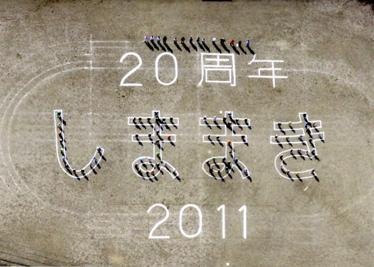 20周年
しままき
2011